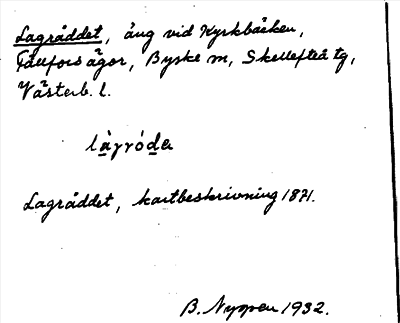 Lagråddet, äng vid Kyrkbäcken,
Fällfors ägor, Byske sn, Skellefteå tg,
Västerb. l.
Lagråddet, kartbeskrivning 1871.
B. Nyman 1932.